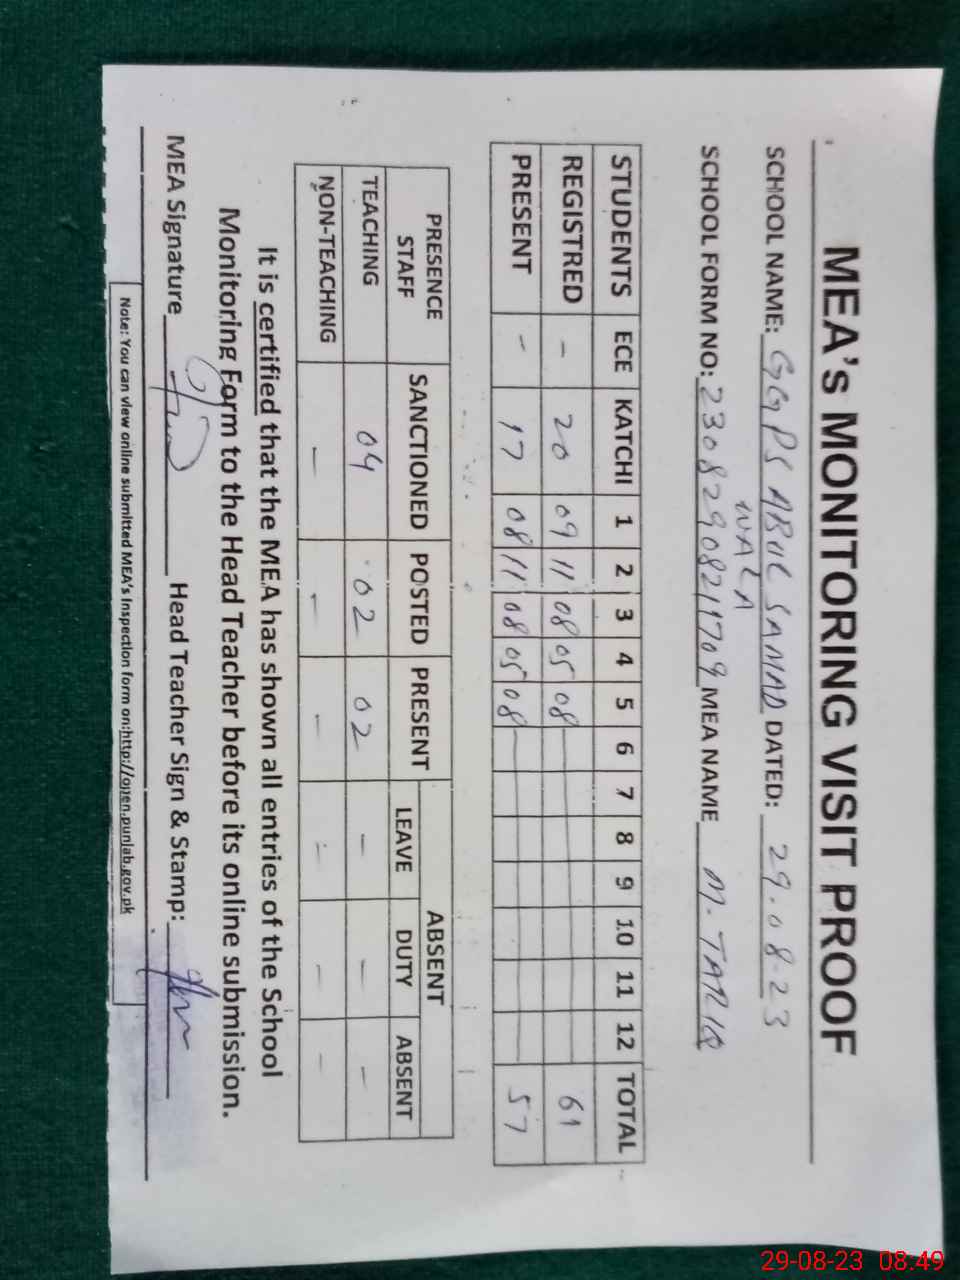 MEA's MONITORING VISIT PROOF
SCHOOL NAME: GGPS ABUL SAMAD WALA DATED: 29.08-23
SCHOOL FORM NO: MEA NAME M. TARIQ
STUDENTS ECE KATCHI 1 2 3 4 5 6 7 8 9 10 11 12 TOTAL
REGISTRED - 20 09 11 08 05 08 61
PRESENT - 17 08 11 08 05 08 57
PRESENCE STAFF SANCTIONED POSTED PRESENT ABSENT
LEAVE DUTY ABSENT
TEACHING 04 02 02 - - -
NON-TEACHING - - - - - -
It is certified that the MEA has shown all entries of the School
Monitoring Form to the Head Teacher before its online submission.
MEA Signature Head Teacher Sign & Stamp:
Note: You can view online submitted MEA's Inspection form on:http://open.punjab.gov.pk
29-08-23 08:49